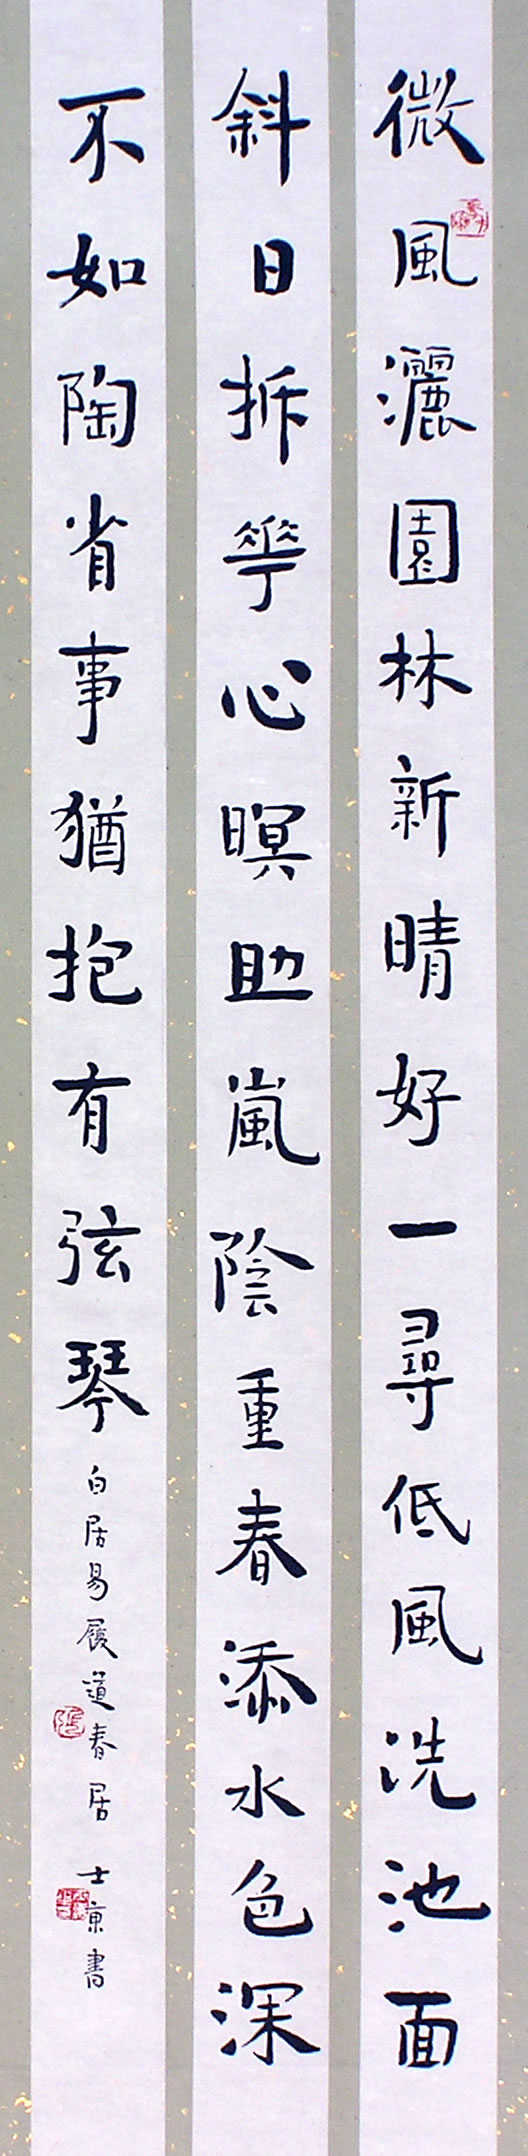 微風灑園林新晴好一尋低風洗池面
斜日拆華心暝助嵐陰重春添水色深
不如陶省事猶抱有弦琴
白居易履道春居 士京書